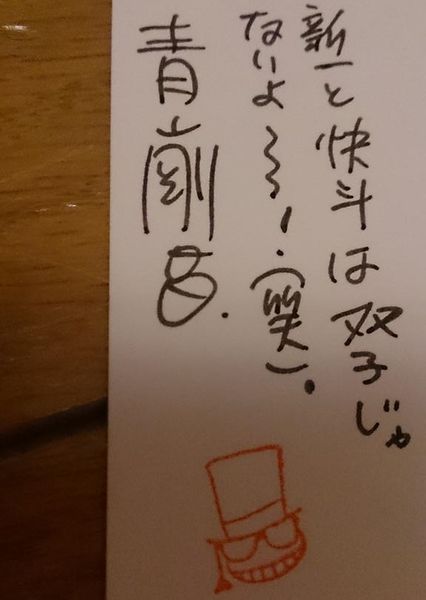 新一と快斗は双子じゃ
ないよ〜〜！(笑)。
青剛昌.